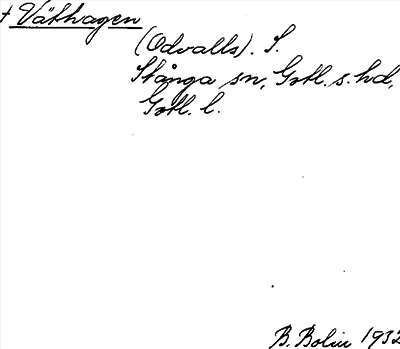 † Väthagen
(Odvalls). S.
Stånga sn, Gotl. s. hd,
Gotl. l.
B. Bolin 1932